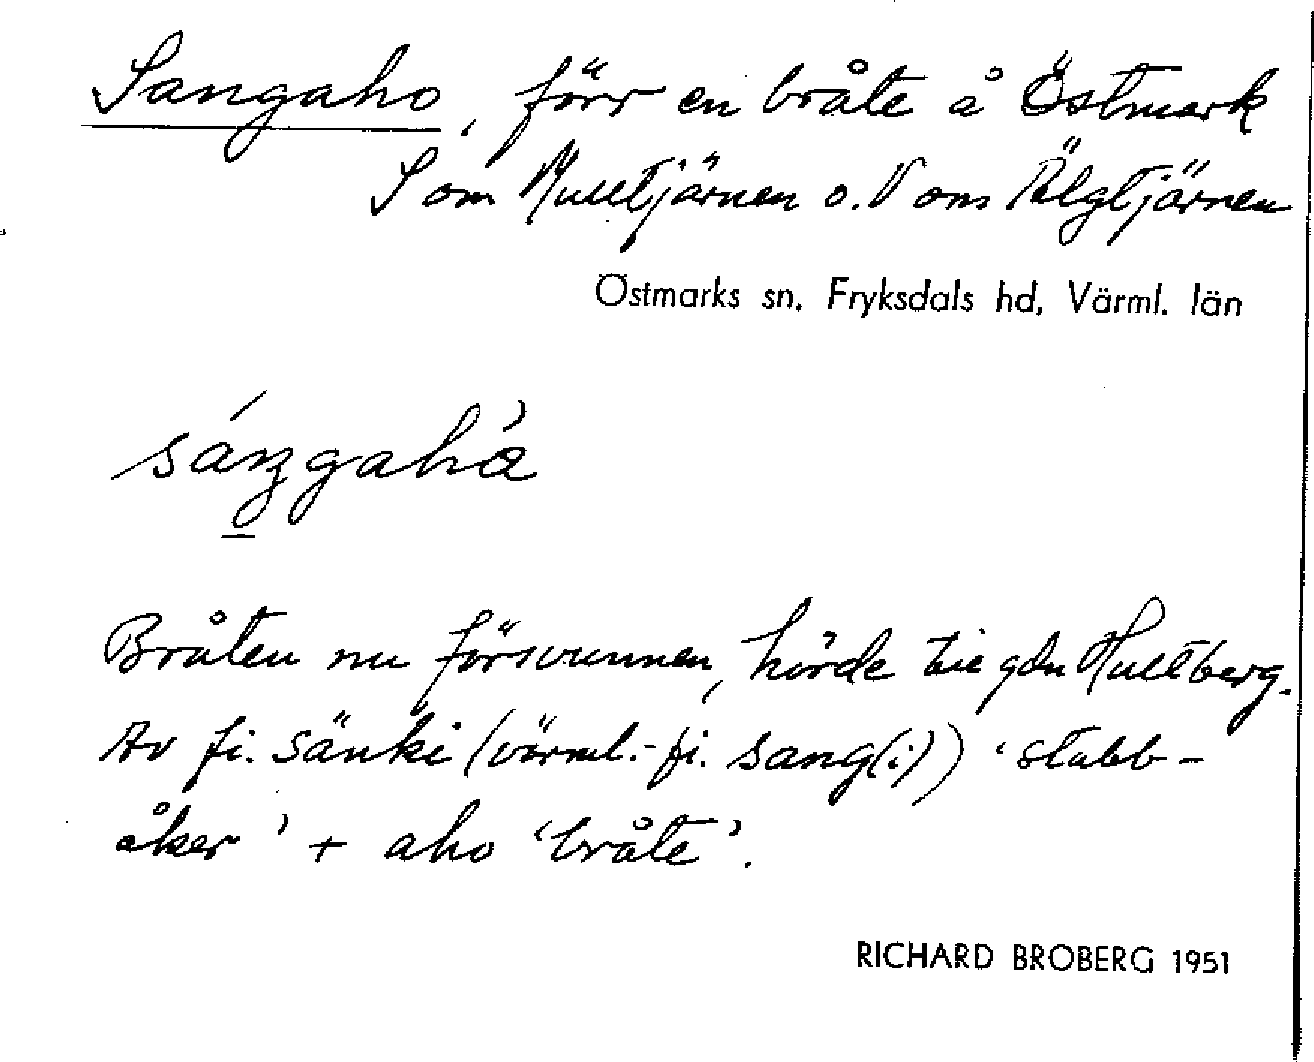 Sangaho, förr en bråte å Östmark
S om Mulltjärnen o. V om Älgtjärnen
Östmarks sn, Fryksdals hd, Värml. län
Bråten nu försvunnen, hörde till gdn Hultberg.
Av fi. sänki (värml.-fi. sang(i)) ‘stubb-
åker’ + aho ‘bråte’.
RICHARD BROBERG 1951